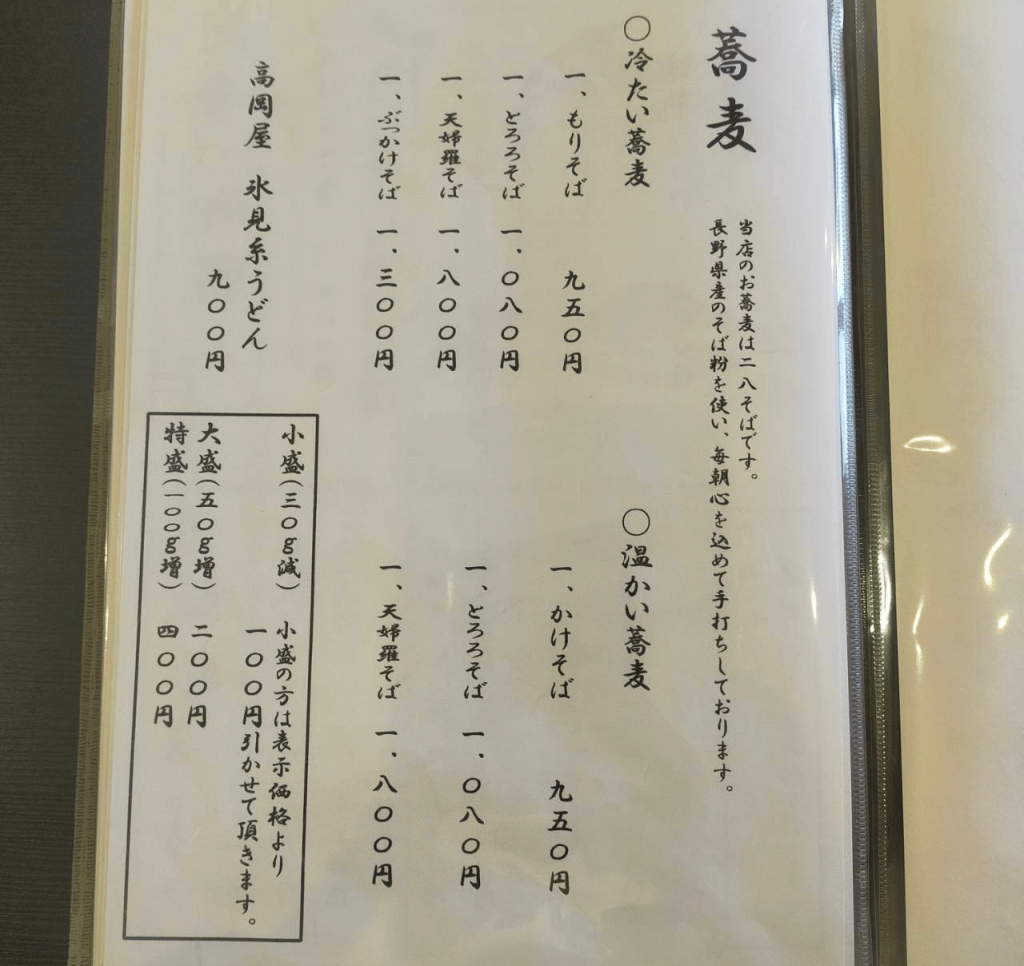 蕎麦
当店のお蕎麦は二八そばです。
長野県産のそば粉を使い、毎朝心を込めて手打ちしております。
〇冷たい蕎麦
一、もりそば 九五〇円
一、とろろそば 一、〇八〇円
一、天婦羅そば 一、八〇〇円
一、ぶっかけそば 一、三〇〇円
高岡屋 氷見糸うどん
九〇〇円
〇温かい蕎麦
一、かけそば 九五〇円
一、とろろそば 一、〇八〇円
一、天婦羅そば 一、八〇〇円
小盛(三〇g減) 小盛の方は表示価格より
一〇〇円引かせて頂きます。
大盛(五〇g増) 二〇〇円
特盛(一〇〇g増) 四〇〇円